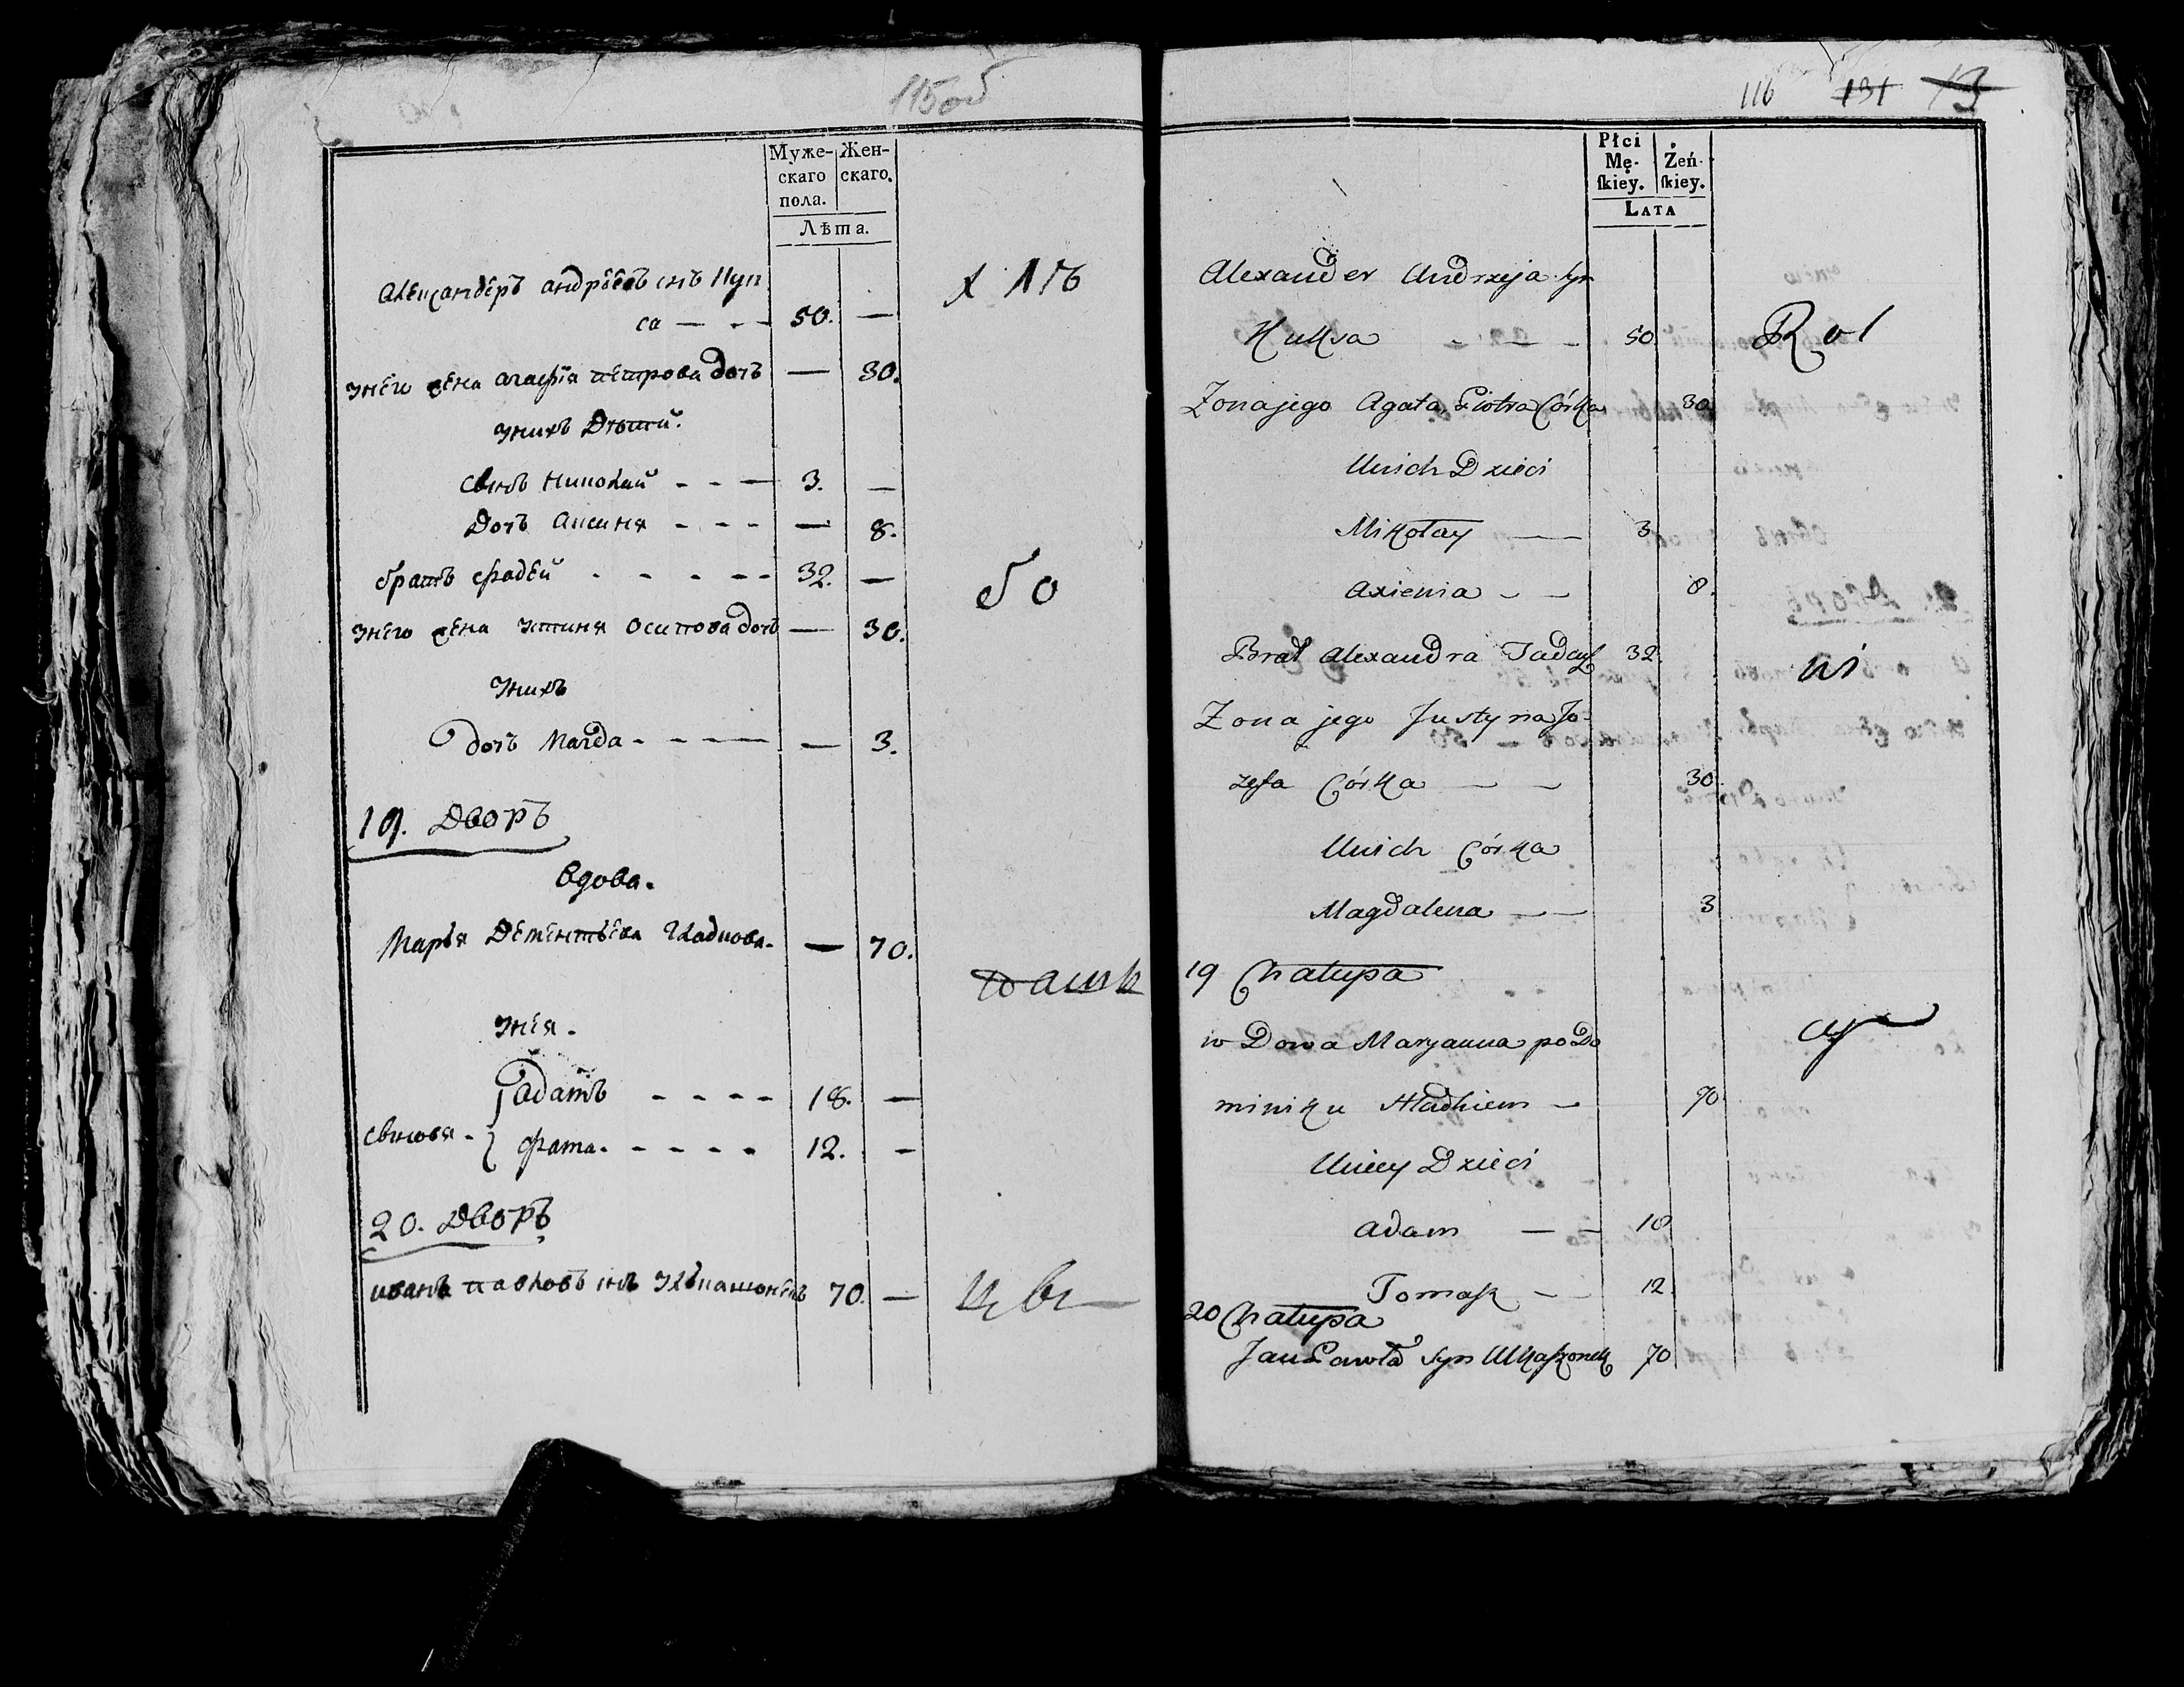 115об
Муже-
скаго
пола.
Жен-
скаго.
Лѣта.
Александеръ андрѣевъ снъ Кук
са — - - 50. —
Унего жена агафія петрова дочъ — 30.
Унихъ Дѣтей.
Сынъ Николай - - — 3. —
Дочъ Аксиня - - - — 8.
братъ фадѣй - - - - - 32. —
Унего жена Устиня Осипова дочъ — 30.
Унихъ
дочъ Магда - - - — — 3.
19. Дворъ
Вдова.
Марья Дементьева Гладкова. — 70.
Унея.
Сыновя. - { адамъ - - - - 18. —
фома. - - - - - 12. -
20. Дворъ
иванъ павловъ снъ 70. —
бо
116 131 13
Płci
Mę-
ſkiey.
Żeń-
ſkiey.
Lata
Alexander Andrzeja syn
Kuksa - — - 50
Zona jego Agata, Piotra Córka 30
Unich Dzieci
Mikołay — 3
Axienia - - 8.
Brat Alexandra Tadeuſz 32.
Zona jego Justyna Jo-
zefa Córka — - 30.
Unich Córka
Magdalena - — 3
19 Chałupa
wDowa Maryanna po Do
miniku Hładkiem - 70
Uniey Dzieci
Adam — - 18
Tomaſz - - 12.
20 Chałupa
Jan Pawła Syn Ukaſzonek 70
Rol
ni